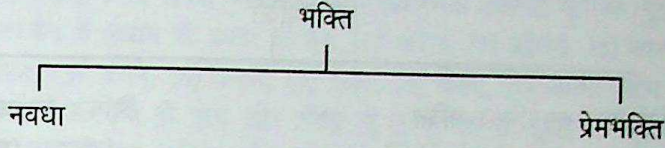 भक्ति
नवधा
प्रेमभक्ति